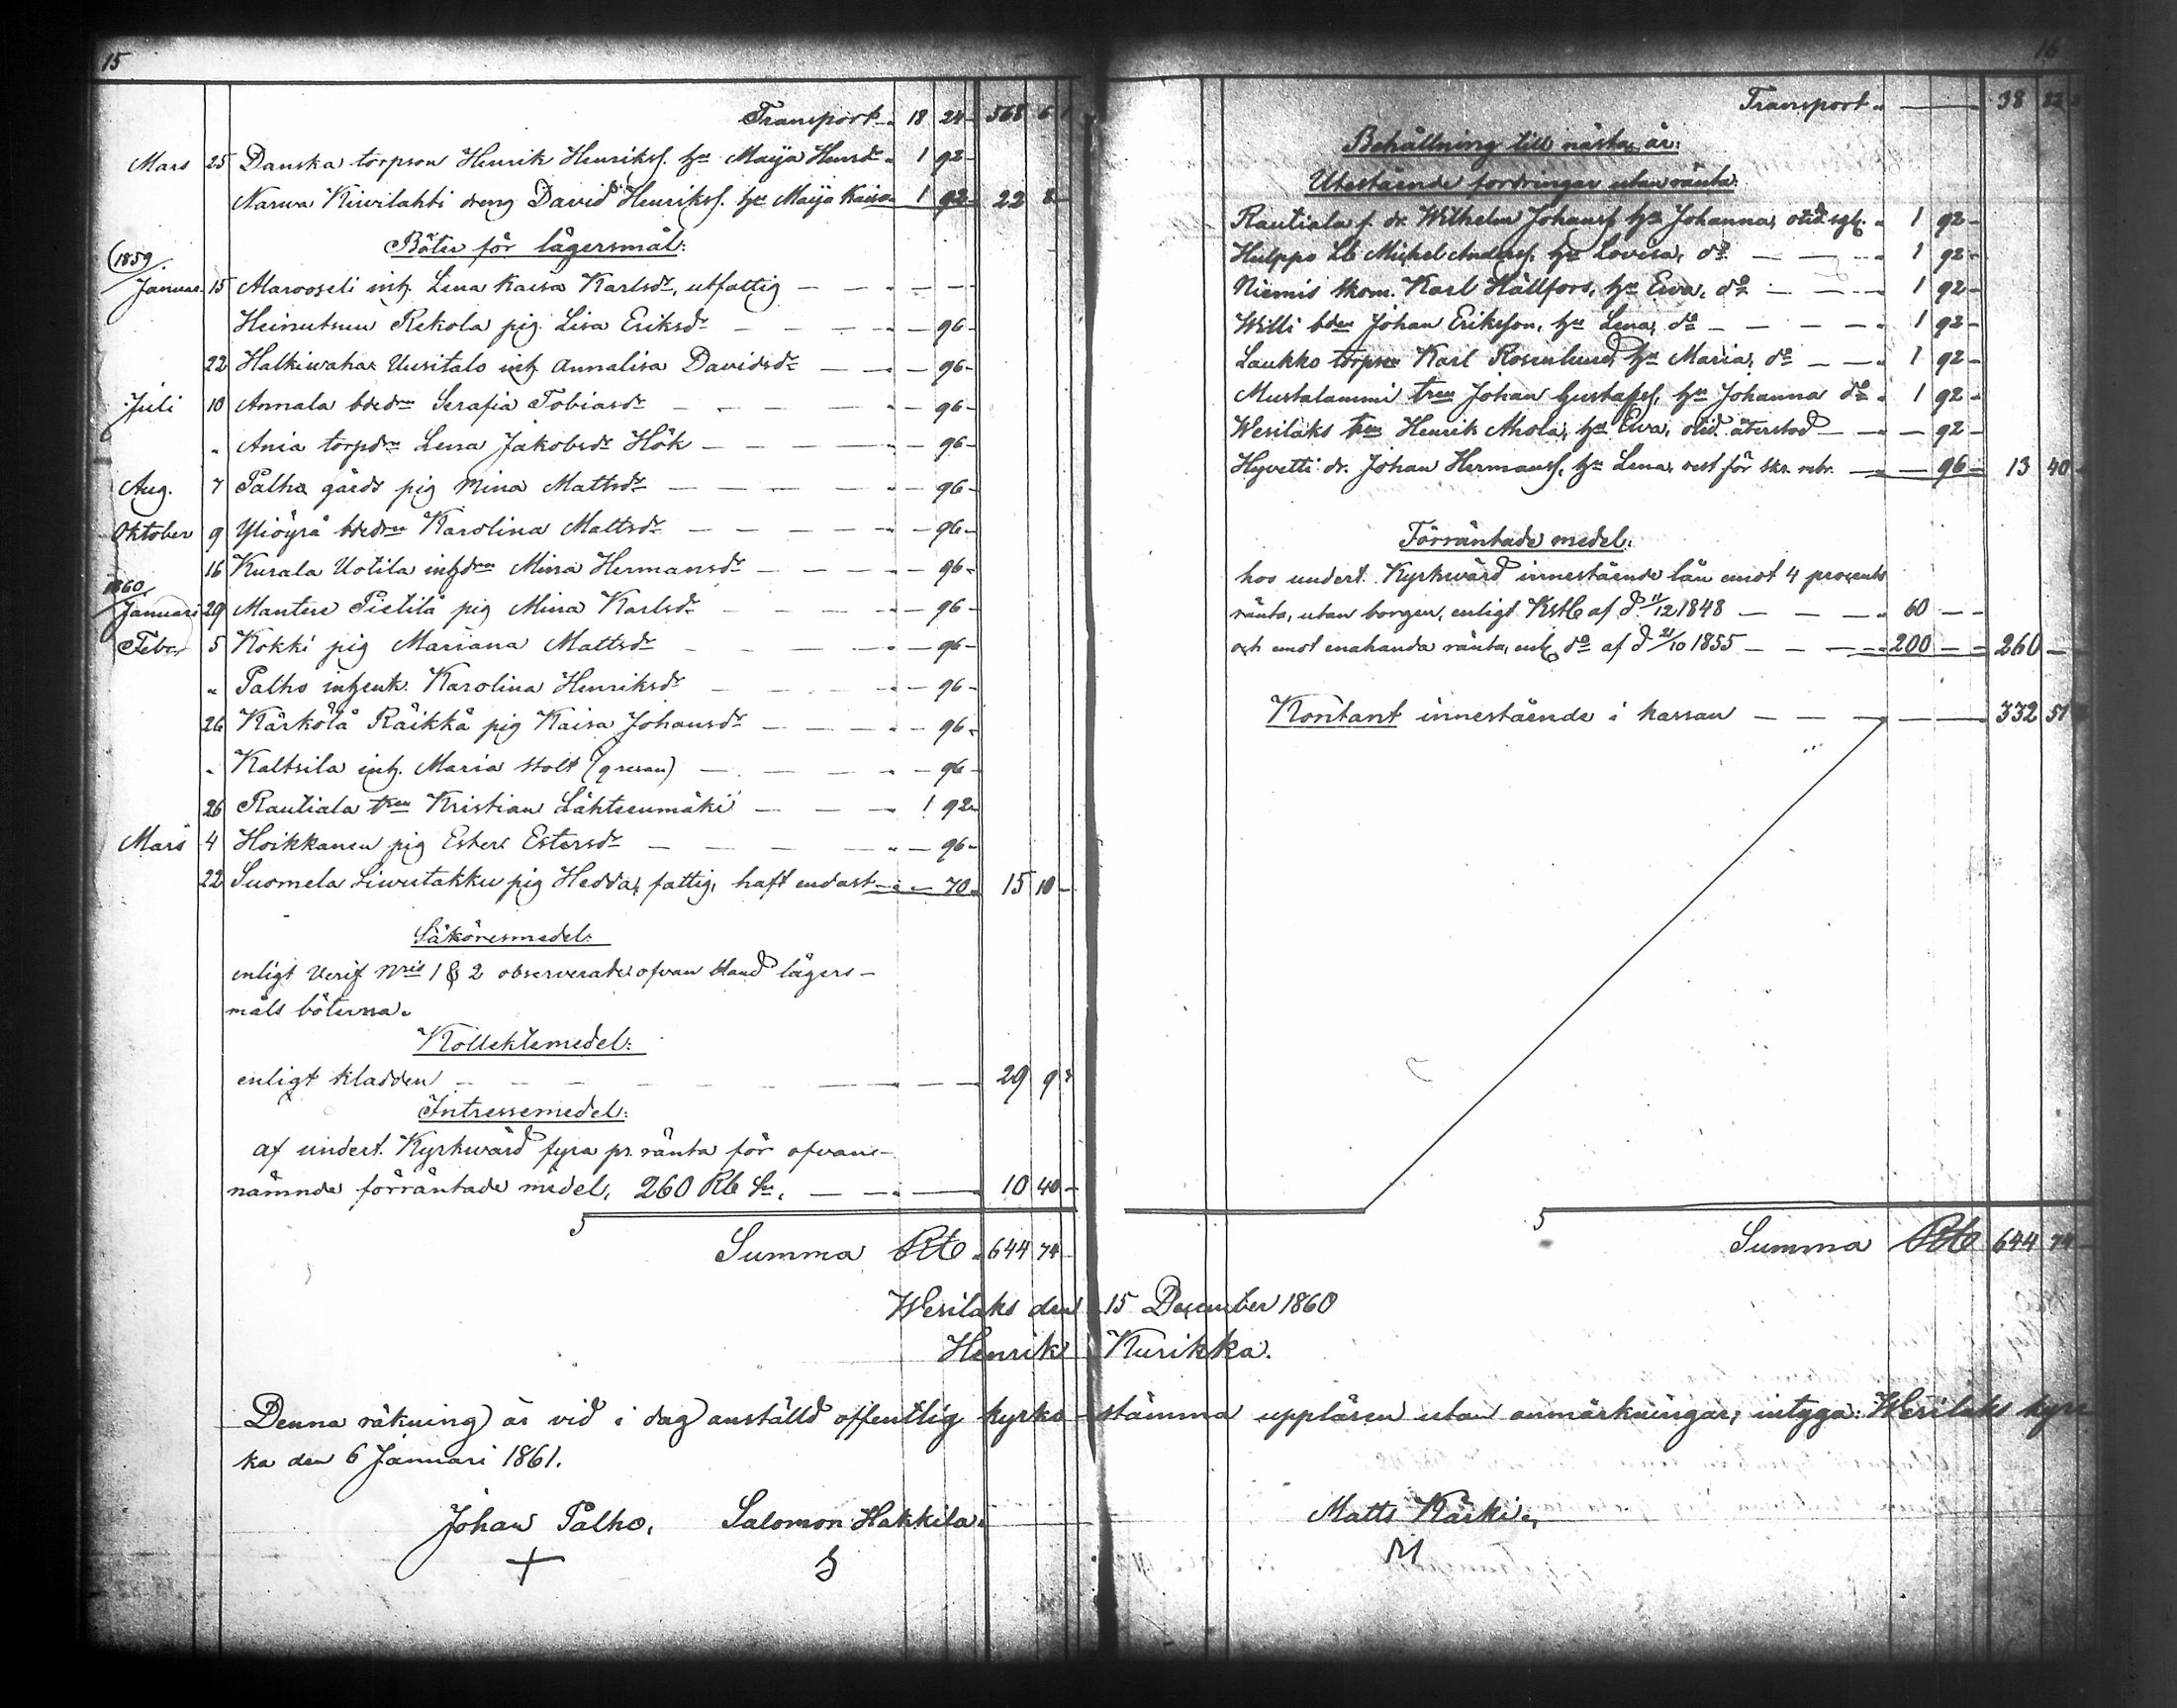 15
Transport 18 24 568 61
Mars 25 Danska torpson Henrik Henrikss. hu Maija Henrsdr 1 92
Narwa Kiwilahti dreng David Henrikss. hu Maija Kaisa 1 92 22 8
Böter för lägersmål:
1859
Januar. 15 Marooseli inh. Lena Kaisa Karlsdr, utfattig — — —
Heinutsuu Rekola pig. Lisa Eriksdr — — — 96
22 Halkiwaha Uusitalo inh. Annalisa Davidsdr — — 96
Juli 10 Annala bdedrn Serafia Tobiasdr — — — 96
" Ania torpdrn Lena Jakobsdr Hök — — — 96
Aug. 7 Palho gårds pig Mina Mattsdr — — — 96
Oktober 9 Yliöyrä bdedrn Karolina Mattsdr — — — 96
16 Kurala Uotila inhdrn Mina Hermansdr — — — 96
1860
Januari 29 Mantere Pietilä pig Mina Karlsdr — — — 96
Feber 5 Kokki pig Mariana Mattsdr — — — 96
" Palho inhenk. Karolina Henriksdr — — — 96
26 Kärkölä Räikkä pig Kaisa Johansdr — — — 96
" Kaltsila inh. Maria Stolt — — — 96
26 Rautiala trn Kristian Lähteenmäki — — 1 92
Mars 4 Hoikkanen pig Ester Estersdr — — — 96
22 Suomela Liwutakku pig Hedda, fattig, haft endast — 70 15 10
Saköresmedel:
enligt Verif Nris 1 & 2 observerade ofvan bland lägers-
måls böterna.
Kollektemedel:
enligt kladden — — — 29 9
Intressemedel:
af undert. Kyrkwärd fyra pr. ränta för ofvan-
nämnde förräntade medel, 260 Rb Sr. — — 10 40
Summa Rb 644 74
16
Transport — 38 82
Behållning till nästa år:
Utestående fordringar utan ränta:
Rautiala f. dr. Wilhelm Johanss. hu Johanna, 1 92
Hulppo Lb Michel Anderss. hu Lovisa, do — — 1 92
Niemis skom. Karl Hällfors, hu Ewa, do — — 1 92
Willi bden Johan Eriksson, hu Lena, do — — 1 92
Laukko torpson Karl Rosenlund, hu Maria, do — — 1 92
Mustalammi tren Johan Gustafss. hu Johanna do 1 92
Wesilaks trn Henrik Ahola, hu Ewa, återstod — — 92
Hyvetti dr. Johan Hermanss, hu Lena, rest för — — 96 13 40
Förräntade medel:
hos undert. Kyrkwärd innestående lån emot 4 procents
ränta, utan borgen, enligt af d 11/12 1848 — — 60 —
och emot enahanda ränta, enl. do af d 21/10 1855 — — 200 — 260 —
Kontant innestående i kassan — — — 332 51
Summa Rb 644 74
Wesilaks den 15 December 1860
Henrik Kurikka.
Denna räkning är vid i dag anställd offentlig kyrko-stämma uppläsen utan anmärkningar, intyga: Wesilaks kyr
ka den 6 Januari 1861.
Johan Palho. Salomon Hakkila. Matts Kärki.